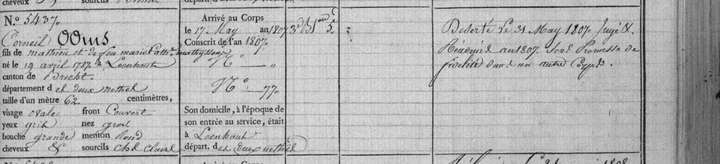 N.° 5437.
Corneil Ooms
fils de mathieu et de feu marie Catt.ne matthyssens
né le 19 avril 1787 à Loenhout
canton de Brecht
département d es deux nethes
taille d'un mètre 62 centimètres,
visage ovale front Couvert
yeux gris nez gros
bouche grande menton Rond
cheveux & sourcils chat. clairs
Arrivé au Corps
le 17 May an 1807
Conscrit de l'an 1807.
N.° 77.
Son domicile, à l'époque de
son entrée au service, était
à Loenhout
départ. des deux nethes
3e 5e
Deserté le 31 May 1807. Jugé &
an 1807. Sous Promesse de
fidélité dans un autre Corps.